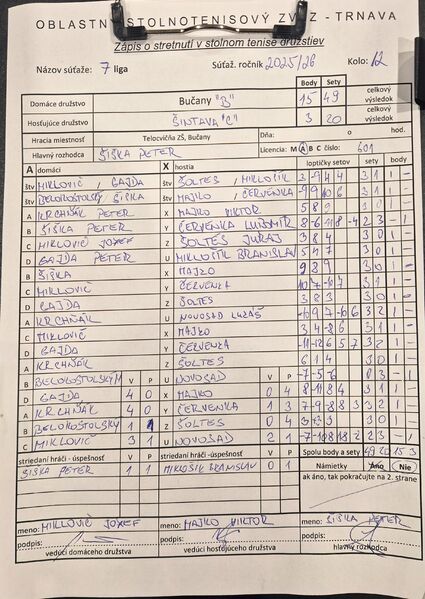 OBLASTNÝ STOLNOTENISOVÝ ZVÄZ - TRNAVA
Zápis o stretnutí v stolnom tenise družstiev
Názov súťaže: 7 liga Súťaž. ročník 2025/26 Kolo: 12
Body Sety
Domáce družstvo Bučany "B" 15 49 celkový výsledok
Hosťujúce družstvo ŠINTAVA "C" 3 20 celkový výsledok
Hracia miestnosť Telocvičňa ZŠ, Bučany Dňa: o hod.
Hlavný rozhodca ŠIŠKA PETER Licencia: M A B C číslo: 601
A domáci X hostia loptičky setov sety body
štv MIKLOVIČ / GAJDA štv ŠOLTES / MIKLOŠIK 3 -9 4 4 3 1 1 -
štv BELOKOSTOLSKÝ ŠIŠKA štv MAJKO / ČERVENKA 3 1 1 -
A KRCHŇÁK PETER X MAJKO VIKTOR 5 8 9 3 0 1 -
B ŠIŠKA PETER Y ČERVENKA ĽUBOMÍR 8 -6 -11 8 -4 2 3 - 1
C MIKLOVIČ JOZEF Z ŠOLTES JURAJ 3 8 4 3 0 1 -
D GAJDA PETER U MIKLOŠIK BRANISLAV 5 4 7 3 0 1 -
B ŠIŠKA X MAJKO 9 8 9 3 0 1 -
C MIKLOVIČ Y ČERVENKA 3 1 1 -
D GAJDA Z ŠOLTES 3 8 3 3 0 1 -
A KRCHŇÁK U NOVOSAD LUKÁŠ -10 9 7 -10 6 3 2 1 -
C MIKLOVIČ X MAJKO 3 4 -8 6 3 1 1 -
D GAJDA Y ČERVENKA -11 -12 6 5 7 3 2 1 -
A KRCHŇÁK Z ŠOLTES 6 1 4 3 0 1 -
B BELOKOSTOLSKÝ M U NOVOSAD -7 -5 -6 0 3 - 1
D GAJDA V 4 P 0 X MAJKO V 0 P 4 3 1 1 -
A KRCHŇÁK 4 0 Y ČERVENKA 1 3 -7 -9 8 8 3 3 2 1 -
B BELOKOSTOLSKÝ 1 1 Z ŠOLTES 0 4 3 0 1 -
C MIKLOVIČ 3 1 U NOVOSAD 2 1 -7 -10 8 18 -2 2 3 - 1
striedaní hráči - úspešnosť V P striedaní hráči - úspešnosť V P Spolu body a sety 49 20 15 3
ŠIŠKA PETER 1 1 MIKLOŠIK BRANISLAV 0 1 Námietky Áno Nie
ak áno, tak pokračujte na 2. strane
meno: MIKLOVIČ JOZEF meno: MAJKO VIKTOR meno: ŠIŠKA PETER
podpis: podpis: podpis:
vedúci domáceho družstva vedúci hosťujúceho družstva hlavný rozhodca